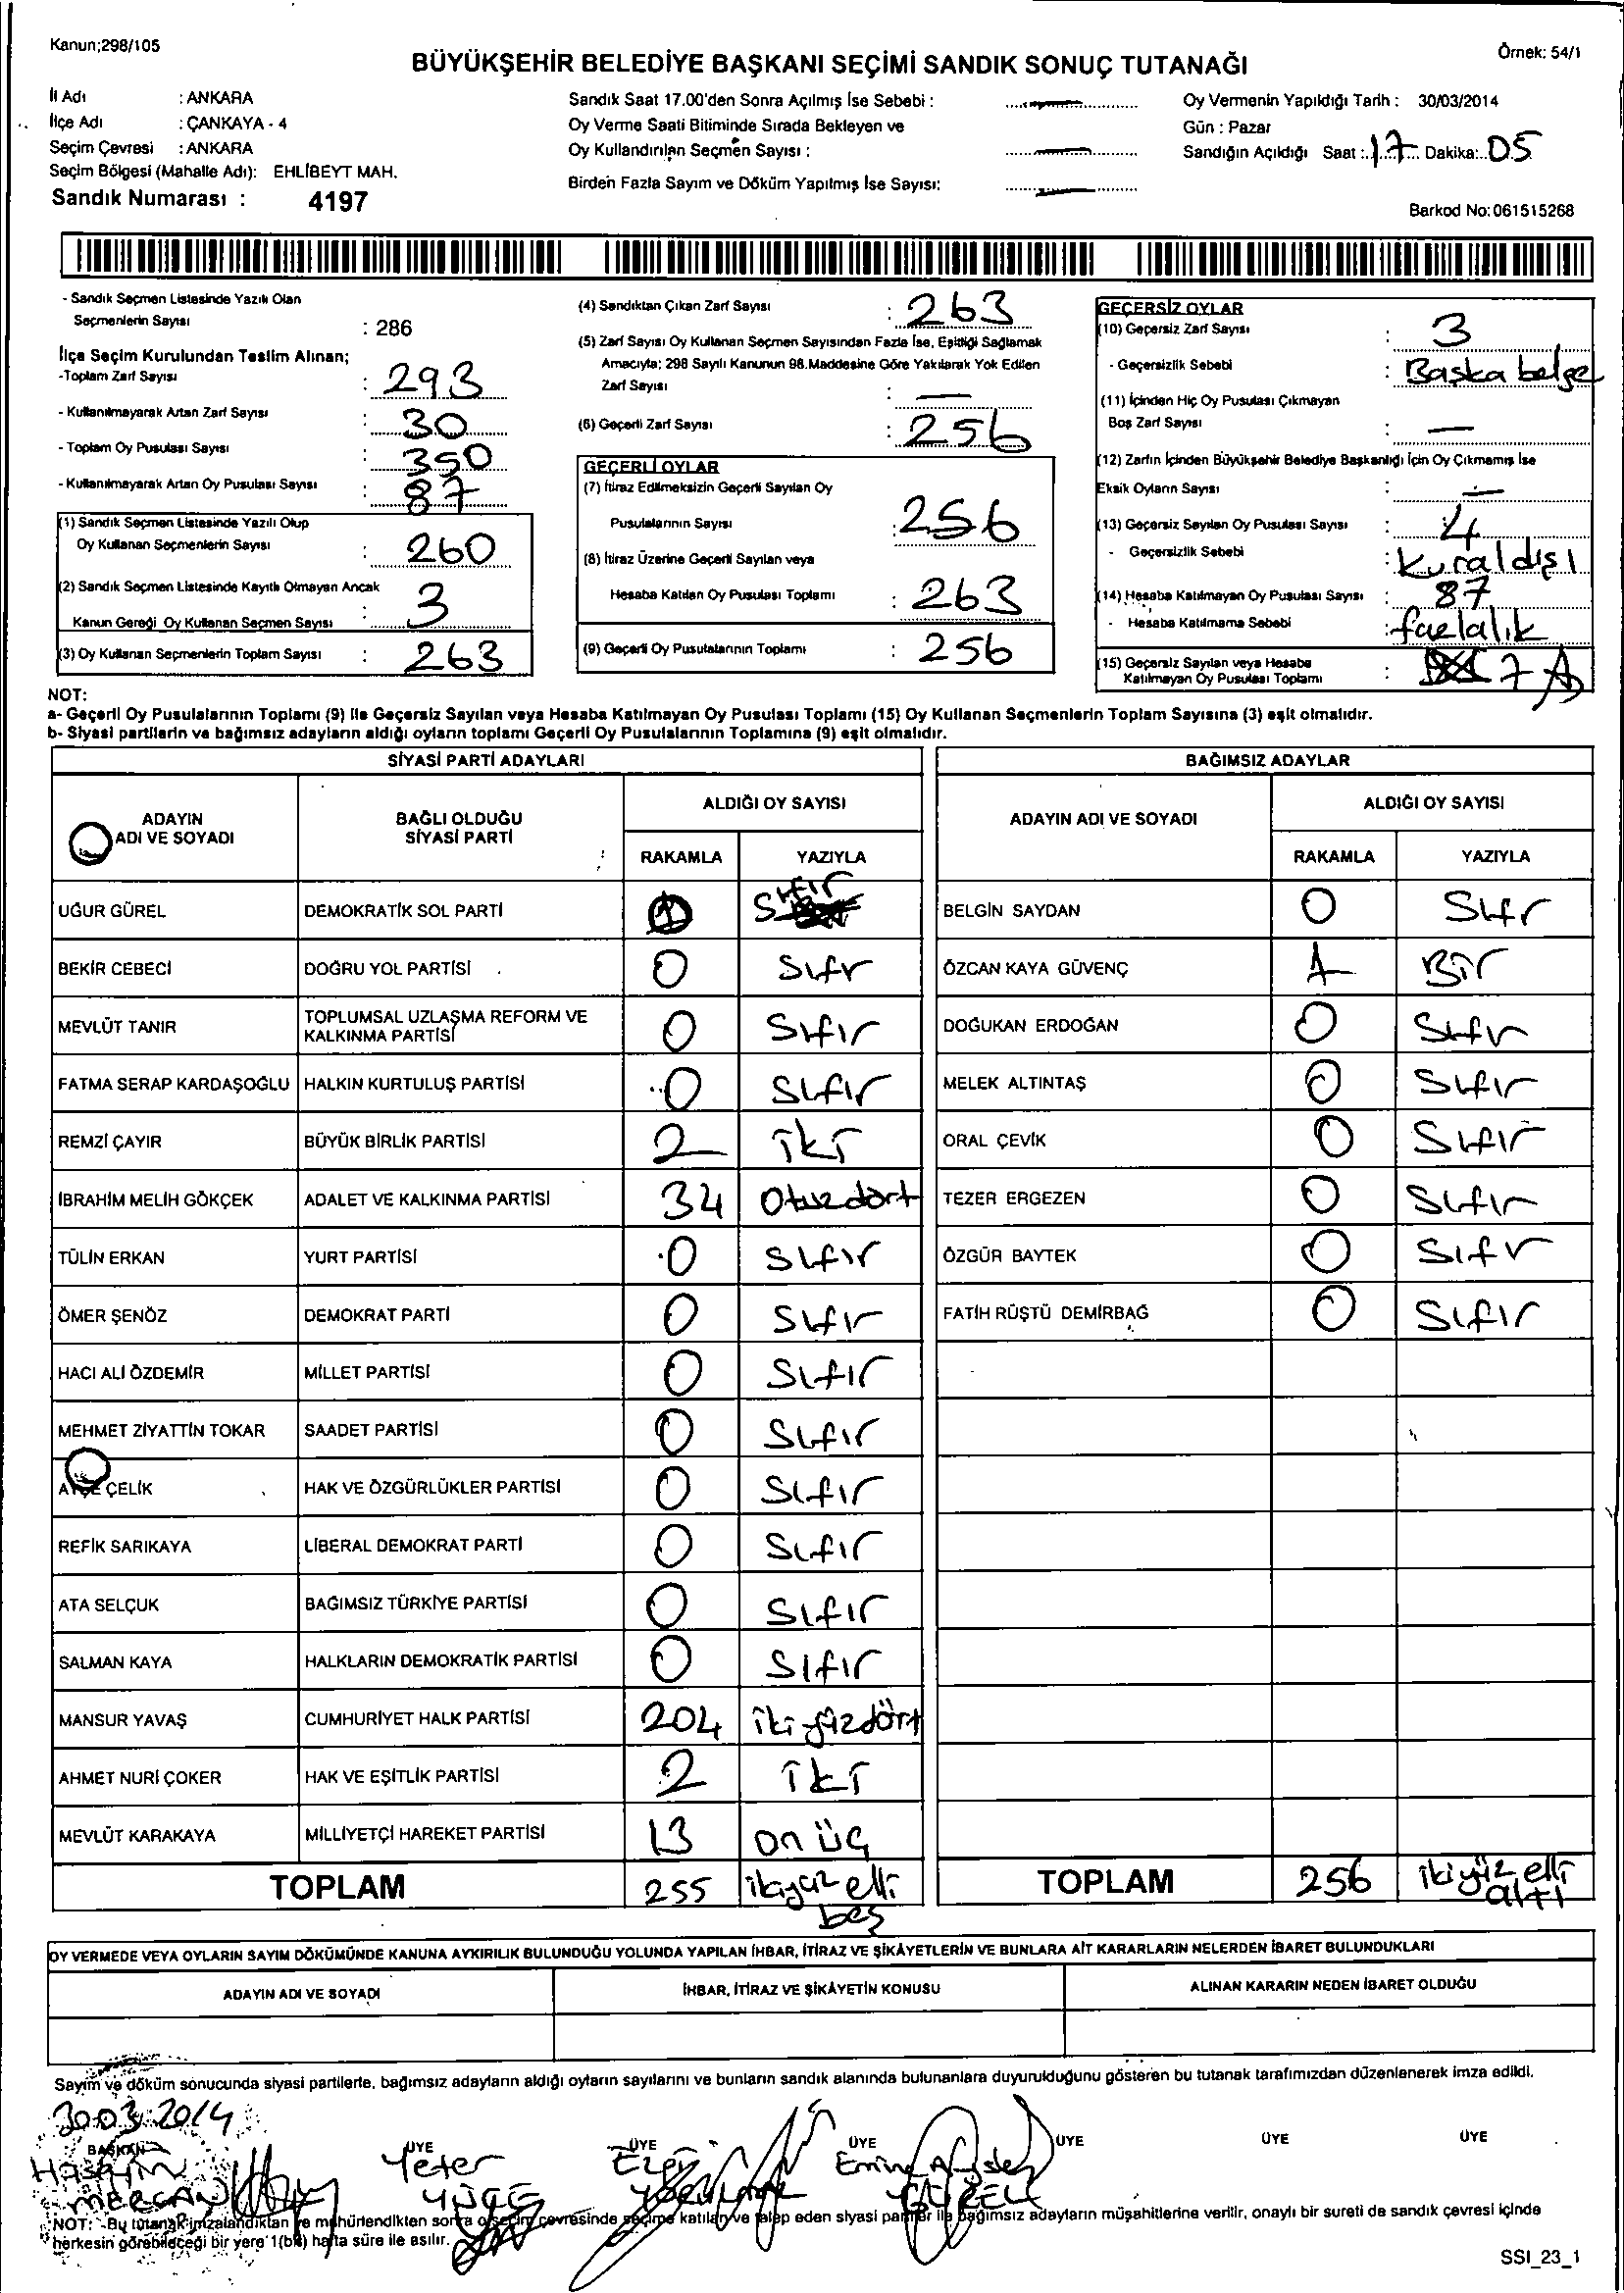 Kanun;298/105
BÜYÜKŞEHİR BELEDİYE BAŞKANI SEÇİMİ SANDIK SONUÇ TUTANAĞI
Örnek: 54/1
İl Adı : ANKARA
İlçe Adı : ÇANKAYA - 4
Seçim Çevresi : ANKARA
Seçim Bölgesi (Mahalle Adı): EHLİBEYT MAH.
Sandık Numarası : 4197
Sandık Saat 17.00'den Sonra Açılmış İse Sebebi : —
Oy Verme Saati Bitiminde Sırada Bekleyen ve
Oy Kullandırılan Seçmen Sayısı : —
Birden Fazla Sayım ve Döküm Yapılmış İse Sayısı: —
Oy Vermenin Yapıldığı Tarih : 30/03/2014
Gün : Pazar
Sandığın Açıldığı Saat : 17 Dakika: 05
Barkod No: 061515268
- Sandık Seçmen Listesinde Yazılı Olan
Seçmenlerin Sayısı : 286
İlçe Seçim Kurulundan Teslim Alınan;
-Toplam Zarf Sayısı : 293
- Kullanılmayarak Artan Zarf Sayısı : 30
- Toplam Oy Pusulası Sayısı : 350
- Kullanılmayarak Artan Oy Pusulası Sayısı : 87
(1) Sandık Seçmen Listesinde Yazılı Olup
Oy Kullanan Seçmenlerin Sayısı : 260
(2) Sandık Seçmen Listesinde Kayıtlı Olmayan Ancak
Kanun Gereği Oy Kullanan Seçmen Sayısı : 3
(3) Oy Kullanan Seçmenlerin Toplam Sayısı : 263
(4) Sandıktan Çıkan Zarf Sayısı : 263
(5) Zarf Sayısı Oy Kullanan Seçmen Sayısından Fazla İse, Eşitliği Sağlamak
Amacıyla; 298 Sayılı Kanunun 98.Maddesine Göre Yakılarak Yok Edilen
Zarf Sayısı : —
(6) Geçerli Zarf Sayısı : 256
GEÇERLİ OYLAR
(7) İtiraz Edilmeksizin Geçerli Sayılan Oy
Pusulalarının Sayısı : 256
(8) İtiraz Üzerine Geçerli Sayılan veya
Hesaba Katılan Oy Pusulası Toplamı : 263
(9) Geçerli Oy Pusulalarının Toplamı : 256
GEÇERSİZ OYLAR
(10) Geçersiz Zarf Sayısı : 3
- Geçersizlik Sebebi : Başka belge
(11) İçinden Hiç Oy Pusulası Çıkmayan
Boş Zarf Sayısı : —
(12) Zarfın İçinden Büyükşehir Belediye Başkanlığı İçin Oy Çıkmamış İse
Eksik Oyların Sayısı : —
(13) Geçersiz Sayılan Oy Pusulası Sayısı : 4
- Geçersizlik Sebebi : Kuraldışı
(14) Hesaba Katılmayan Oy Pusulası Sayısı : 87
- Hesaba Katılmama Sebebi : fazlalık
(15) Geçersiz Sayılan veya Hesaba
Katılmayan Oy Pusulası Toplamı : 7
NOT:
a- Geçerli Oy Pusulalarının Toplamı (9) ile Geçersiz Sayılan veya Hesaba Katılmayan Oy Pusulası Toplamı (15) Oy Kullanan Seçmenlerin Toplam Sayısına (3) eşit olmalıdır.
b- Siyasi partilerin ve bağımsız adayların aldığı oyların toplamı Geçerli Oy Pusulalarının Toplamına (9) eşit olmalıdır.
SİYASİ PARTİ ADAYLARI
ADAYIN ADI VE SOYADI
BAĞLI OLDUĞU SİYASİ PARTİ
ALDIĞI OY SAYISI
RAKAMLA YAZIYLA
UĞUR GÜREL DEMOKRATİK SOL PARTİ Sıfır
BEKİR CEBECİ DOĞRU YOL PARTİSİ 0 Sıfr
MEVLÜT TANIR TOPLUMSAL UZLAŞMA REFORM VE KALKINMA PARTİSİ 0 Sıfır
FATMA SERAP KARDAŞOĞLU HALKIN KURTULUŞ PARTİSİ 0 Sıfır
REMZİ ÇAYIR BÜYÜK BİRLİK PARTİSİ 2 İki
İBRAHİM MELİH GÖKÇEK ADALET VE KALKINMA PARTİSİ 34 Otuzdört
TÜLİN ERKAN YURT PARTİSİ 0 Sıfır
ÖMER ŞENÖZ DEMOKRAT PARTİ 0 Sıfır
HACI ALİ ÖZDEMİR MİLLET PARTİSİ 0 Sıfır
MEHMET ZİYATTİN TOKAR SAADET PARTİSİ 0 Sıfır
AYŞE ÇELİK HAK VE ÖZGÜRLÜKLER PARTİSİ 0 Sıfır
REFİK SARIKAYA LİBERAL DEMOKRAT PARTİ 0 Sıfır
ATA SELÇUK BAĞIMSIZ TÜRKİYE PARTİSİ 0 Sıfır
SALMAN KAYA HALKLARIN DEMOKRATİK PARTİSİ 0 Sıfır
MANSUR YAVAŞ CUMHURİYET HALK PARTİSİ 204 ikiyüzdört
AHMET NURİ ÇOKER HAK VE EŞİTLİK PARTİSİ 2 İki
MEVLÜT KARAKAYA MİLLİYETÇİ HAREKET PARTİSİ 13 on üç
TOPLAM 255 ikiyüz elli beş
BAĞIMSIZ ADAYLAR
ADAYIN ADI VE SOYADI
ALDIĞI OY SAYISI
RAKAMLA YAZIYLA
BELGİN SAYDAN 0 Sıfr
ÖZCAN KAYA GÜVENÇ 1 Bir
DOĞUKAN ERDOĞAN 0 Sıfır
MELEK ALTINTAŞ 0 Sıfır
ORAL ÇEVİK 0 Sıfır
TEZER ERGEZEN 0 Sıfır
ÖZGÜR BAYTEK 0 Sıfr
FATİH RÜŞTÜ DEMİRBAĞ 0 Sıfır
TOPLAM 256 ikiyüz elli altı
OY VERMEDE VEYA OYLARIN SAYIM DÖKÜMÜNDE KANUNA AYKIRILIK BULUNDUĞU YOLUNDA YAPILAN İHBAR, İTİRAZ VE ŞİKÂYETLERİN VE BUNLARA AİT KARARLARIN NELERDEN İBARET BULUNDUKLARI
ADAYIN ADI VE SOYADI İHBAR, İTİRAZ VE ŞİKÂYETİN KONUSU ALINAN KARARIN NEDEN İBARET OLDUĞU
Sayım ve döküm sonucunda siyasi partilerle, bağımsız adayların aldığı oyların sayılarını ve bunların sandık alanında bulunanlara duyurulduğunu gösteren bu tutanak tarafımızdan düzenlenerek imza edildi.
30.03.2014
BAŞKAN ÜYE ÜYE ÜYE ÜYE ÜYE ÜYE
Yeter Emine
MERCAN YÜCE GÜREL
NOT: -Bu tutanak imzalandıktan ve mühürlendikten sonra o seçim çevresinde seçime katılan ve talep eden siyasi partiler ile bağımsız adayların müşahitlerine verilir, onaylı bir sureti de sandık çevresi içinde
herkesin görebileceği bir yere 1(bir) hafta süre ile asılır.
SSI_23_1